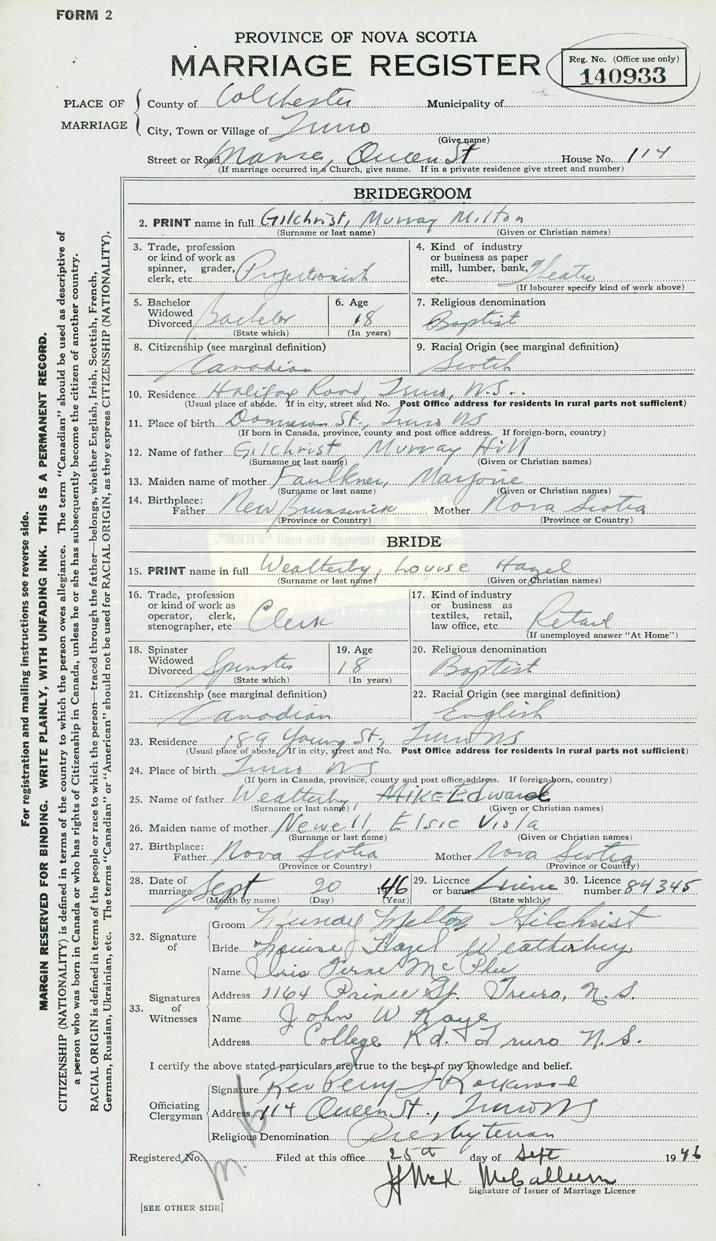 FORM 2
PROVINCE OF NOVA SCOTIA
MARRIAGE REGISTER
Reg. No. (Office use only)
140933
PLACE OF MARRIAGE
County of Colchester Municipality of
City, Town or Village of Truro
(Give name)
Street or Road Manse, Queen St House No. 114
(If marriage occurred in a Church, give name. If in a private residence give street and number)
BRIDEGROOM
2. PRINT name in full Gilchrist, Murray Milton
(Surname or last name) (Given or Christian names)
3. Trade, profession or kind of work as spinner, grader, clerk, etc. Projectionist
4. Kind of industry or business as paper mill, lumber, bank, etc. Theatre
(If labourer specify kind of work above)
5. Bachelor Widowed Divorced Bachelor
(State which)
6. Age 18
(In years)
7. Religious denomination Baptist
8. Citizenship (see marginal definition) Canadian
9. Racial Origin (see marginal definition) Scotch
10. Residence Halifax Road, Truro, N.S.
(Usual place of abode. If in city, street and No. Post Office address for residents in rural parts not sufficient)
11. Place of birth St., Truro NS
(If born in Canada, province, county and post office address. If foreign-born, country)
12. Name of father Gilchrist, Murray Hill
(Surname or last name) (Given or Christian names)
13. Maiden name of mother Faulkner, Marjorie
(Surname or last name) (Given or Christian names)
14. Birthplace: Father New Brunswick Mother Nova Scotia
(Province or Country) (Province or Country)
BRIDE
15. PRINT name in full Weatherby, Louise Hazel
(Surname or last name) (Given or Christian names)
16. Trade, profession or kind of work as operator, clerk, stenographer, etc. Clerk
17. Kind of industry or business as textiles, retail, law office, etc. Retail
(If unemployed answer "At Home")
18. Spinster Widowed Divorced Spinster
(State which)
19. Age 18
(In years)
20. Religious denomination Baptist
21. Citizenship (see marginal definition) Canadian
22. Racial Origin (see marginal definition) English
23. Residence 189 Young St, Truro NS
(Usual place of abode. If in city, street and No. Post Office address for residents in rural parts not sufficient)
24. Place of birth Truro NS
(If born in Canada, province, county and post office address. If foreign-born, country)
25. Name of father Weatherby, Mike Edward
(Surname or last name) (Given or Christian names)
26. Maiden name of mother Newell Elsie Viola
(Surname or last name) (Given or Christian names)
27. Birthplace: Father Nova Scotia Mother Nova Scotia
(Province or Country) (Province or Country)
28. Date of marriage Sept 20 1946
(Month by name) (Day) (Year)
29. Licence or banns
(State which)
30. Licence number 84345
32. Signature of
Groom Murray Milton Gilchrist
Bride Louise Hazel Weatherby
33. Signatures of Witnesses
Name McPhee
Address 1164 Prince St. Truro, N.S.
Name John W Kaye
Address College Rd. Truro N.S.
I certify the above stated particulars are true to the best of my knowledge and belief.
Officiating Clergyman
Signature Rev Percy
Address 114 Queen St., Truro NS
Religious Denomination Presbyterian
Registered No. Filed at this office 25th day of Sept 1946
McK McCallum
Signature of Issuer of Marriage Licence
[SEE OTHER SIDE]
For registration and mailing instructions see reverse side.
MARGIN RESERVED FOR BINDING. WRITE PLAINLY, WITH UNFADING INK. THIS IS A PERMANENT RECORD.
CITIZENSHIP (NATIONALITY) is defined in terms of the country to which the person owes allegiance. The term "Canadian" should be used as descriptive of
a person who was born in Canada or who has rights of Citizenship in Canada, unless he or she has subsequently become the citizen of another country.
RACIAL ORIGIN is defined in terms of the people or race to which the person—traced through the father—belongs, whether English, Irish, Scottish, French,
German, Russian, Ukrainian, etc. The terms "Canadian" or "American" should not be used for RACIAL ORIGIN, as they express CITIZENSHIP (NATIONALITY).